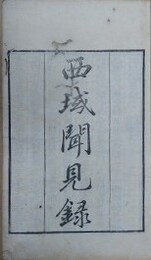 西域聞見録